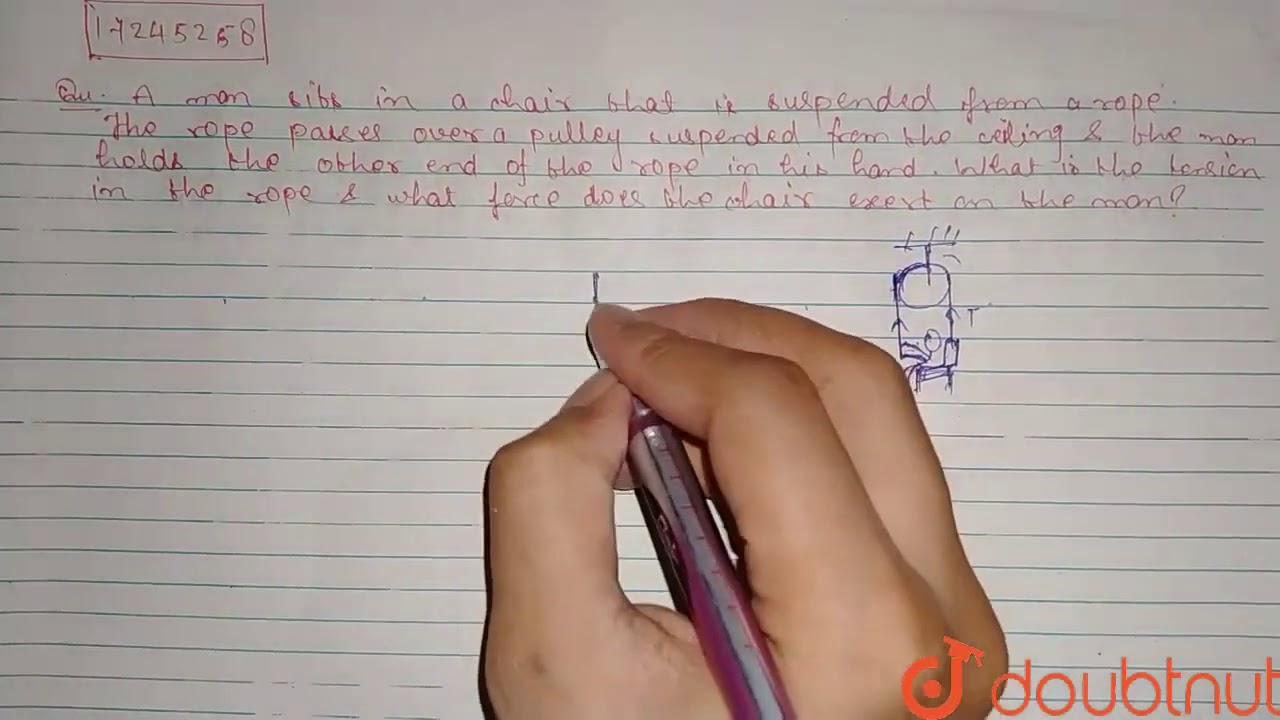 17245258
Qu. A man sits in a chair that is suspended from a rope.
The rope passes over a pulley suspended from the ceiling & the man
holds the other end of the rope in his hand. What is the tension
in the rope & what force does the chair exert on the man?
T
doubtnut